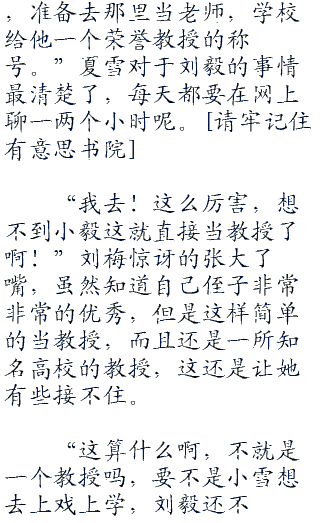 ，准备去那里当老师，学校
给他一个荣誉教授的称
号。”夏雪对于刘毅的事情
最清楚了，每天都要在网上
聊一两个小时呢。[请牢记住
有意思书院]
“我去！这么厉害，想
不到小毅这就直接当教授了
啊！”刘梅惊讶的张大了
嘴，虽然知道自己侄子非常
非常的优秀，但是这样简单
的当教授，而且还是一所知
名高校的教授，这还是让她
有些接不住。
“这算什么啊，不就是
一个教授吗，要不是小雪想
去上戏上学，刘毅还不